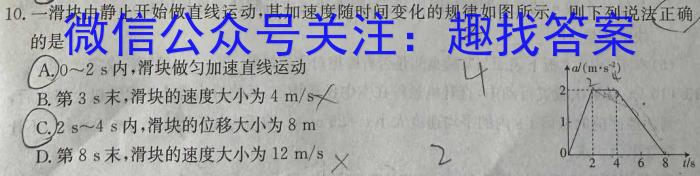 10. 一滑块由静止开始做直线运动,其加速度随时间变化的规律如图所示。则下列说法正确
的是
微信公众号关注:趣找答案
A. 0~2 s内,滑块做匀加速直线运动
B. 第3 s末,滑块的速度大小为4 m/s
C. 2 s~4 s内,滑块的位移大小为8 m
D. 第8 s末,滑块的速度大小为12 m/s
4
2
a/(m·s⁻²)
2 4
2
1
0 2 4 6 8 t/s